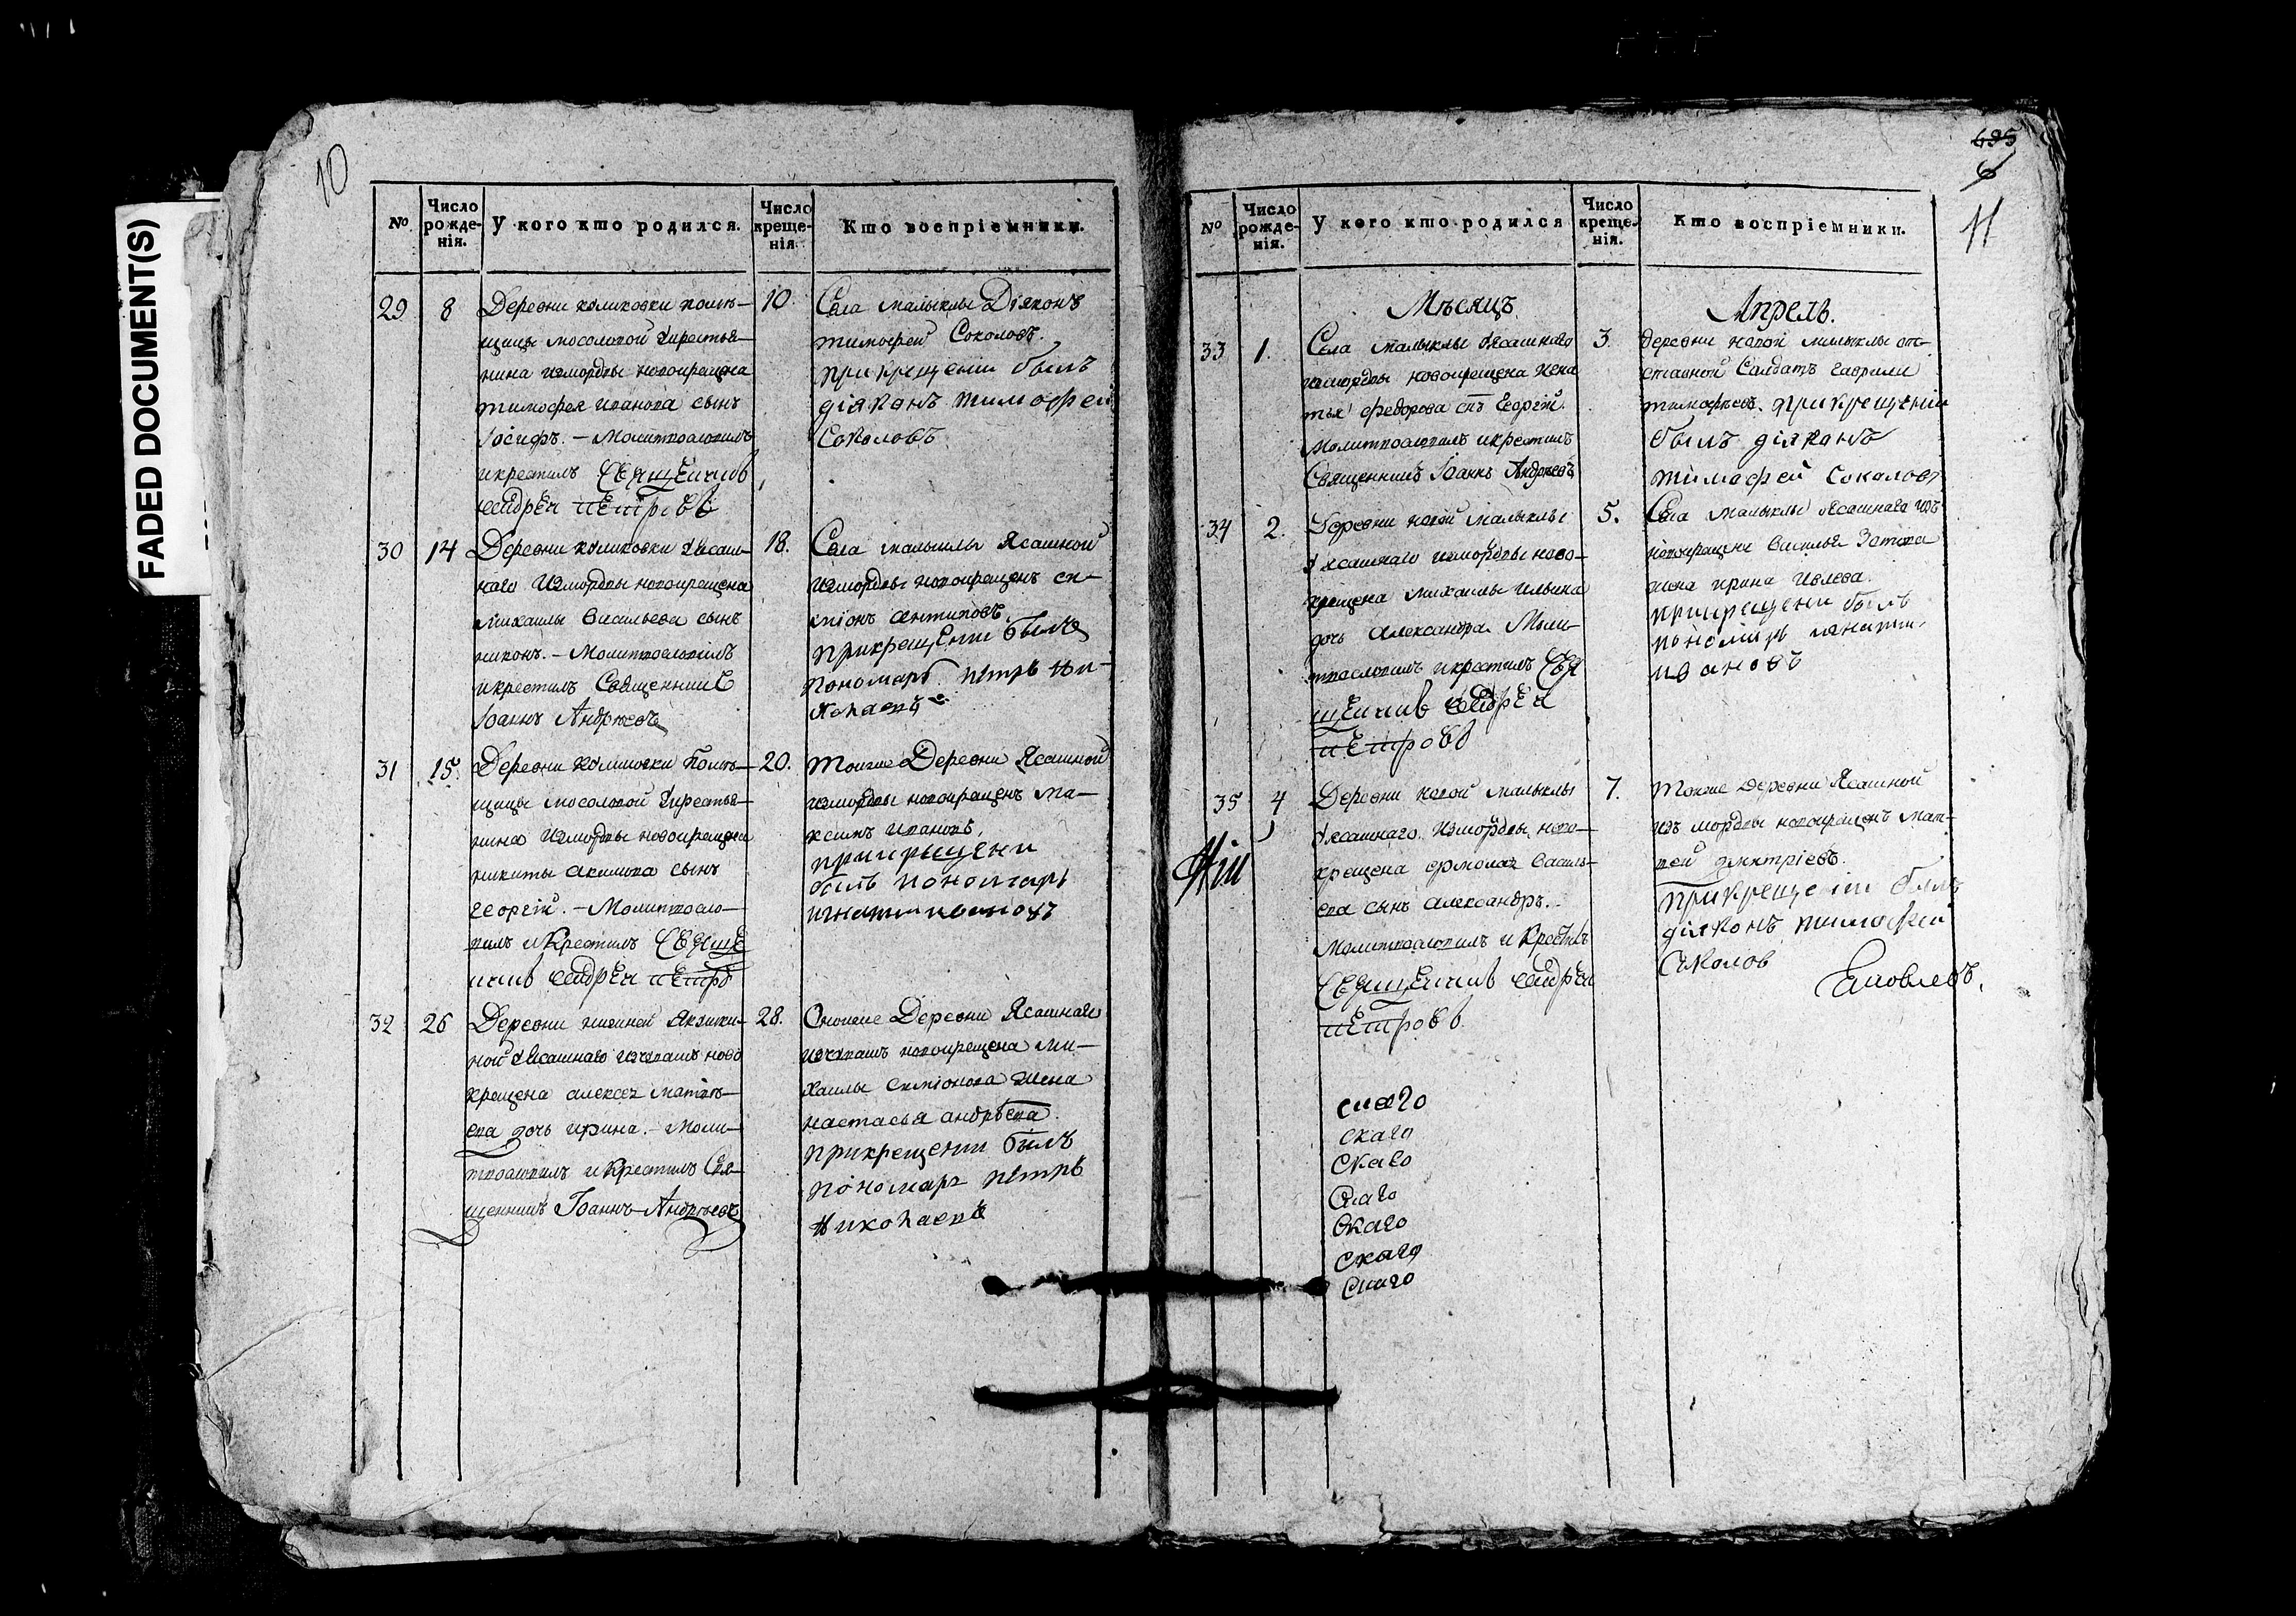 FADED DOCUMENT(S)
10
№
Число рожде- нія.
У кого кто родился.
Число креще- нія.
Кто воспріемники.
29 8 Деревни колиховки помѣ-
щицы мосоловой крестья-
нина измордвы новокрещена
тимофея иванова сынъ
Іосифъ. – Молитвословилъ
икрестилъ Священникъ
андрей петровъ
10. Села малыклы Діяконъ
тимофей Соколовъ.
при крещеніи былъ
діяконъ тимофей
Соколовъ
30 14 Деревни колиховки Ясаш-
наго Измордвы новокрещена
михаилы васильева сынъ
никонъ. – Молитвословилъ
икрестилъ Священникъ
Іоаннъ Андреевъ
18. Села малыклы Ясашной
Измордвы новокрещенъ си-
міонъ антиповъ.
прикрещении былъ
пономарь петръ ни-
колаевъ
31 15. Деревни колиховки Помѣ-
щицы мосоловой крестья-
нина Измордвы новокрещена
никиты акимова сынъ
георгій. – Молитвосло-
вилъ и Крестилъ Священ
никъ андрей петровъ
20. Тоижже Деревни Ясашной
измордвы новокрещенъ ма-
ксимъ ивановъ.
прикрещени
былъ пономарь
игнати ивановъ
32 26 Деревни нижней
ной Ясашнаго изчювашъ ново
крещена алексея матвѣ-
ева дочь ирина. – Моли-
твословилъ и Крестилъ Свя-
щенникъ Іоаннъ Андреевъ
28. Оножже Деревни Ясашнаго
изчювашъ новокрещена ми-
хаилы симіонова жена
настасья андрѣева.
прикрещении былъ
пономарь петръ
николаевъ
695
6
11
№
Число рожде- нія.
У кого кто родился
Число креще- нія.
Кто воспріемники.
Мѣсяцъ Апрель.
33 1. Села малыклы Ясашнаго
измордвы новокрещена
федорова сынъ Георгій.
Молитвословилъ икрестилъ
Священникъ Іоаннъ Андреевъ
3. деревни новой малыклы от-
ставной Салдатъ гаврили
тимофеевъ. прикрещеніи
былъ діяконъ
тимофей Соколовъ
34 2. Деревни новой малыклы
Ясашнаго измордвы ново-
крещена михаилы ильина
дочь александра. Моли-
твословилъ икрестилъ Свя
щенникъ андрей
петровъ
5. Села малыклы Ясашнаго изъ
новокрещенъ василья
жена ирина
прикрещени былъ
пономарь игнати
ивановъ
35 4 Деревни новой малыклы
Ясашнаго. Измордвы, ново-
крещена ермолая василь-
ева сынъ александръ.
Молитвословилъ и Крестилъ
Священникъ андрей
петровъ.
7. Тоижже Деревни Ясашной
изъ мордвы новокрещенъ мат-
вей дмитріевъ.
прикрещеніи былъ
діяконъ тимофей
Соколов
Яковлевъ.
скаго
скаго
скаго
скаго
скаго
скаго
скаго